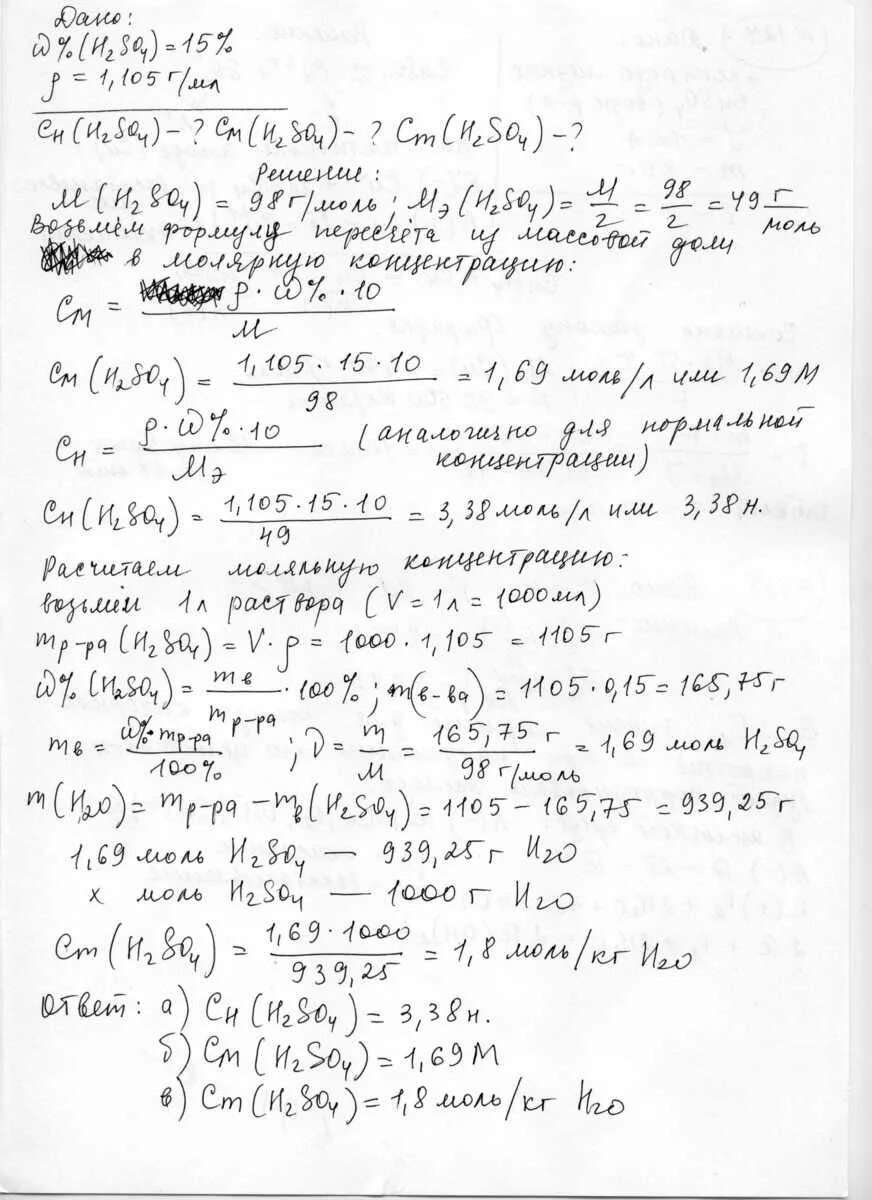 Дано:
ω% (H₂SO₄) = 15%
ρ = 1,105 г/мл
Сн (H₂SO₄) - ? См (H₂SO₄) - ? Cm (H₂SO₄) - ?
Решение:
M (H₂SO₄) = 98 г/моль ; Mэ (H₂SO₄) = M/2 = 98/2 = 49 г/моль
Возьмём формулу пересчёта из массовой доли
в молярную концентрацию:
См = ρ · ω% · 10 / M
См (H₂SO₄) = 1,105 · 15 · 10 / 98 = 1,69 моль/л или 1,69 М
Сн = ρ · ω% · 10 / Mэ (аналогично для нормальной
концентрации)
Сн (H₂SO₄) = 1,105 · 15 · 10 / 49 = 3,38 моль/л или 3,38 н.
Расчитаем моляльную концентрацию:
возьмём 1 л раствора (V = 1 л = 1000 мл)
mр-ра (H₂SO₄) = V · ρ = 1000 · 1,105 = 1105 г
ω% (H₂SO₄) = mв / mр-ра · 100% ; m(в-ва) = 1105 · 0,15 = 165,75 г
mв = ω% · mр-ра / 100% ; ν = m/M = 165,75 г / 98 г/моль = 1,69 моль H₂SO₄
m (H₂O) = mр-ра - mв (H₂SO₄) = 1105 - 165,75 = 939,25 г
1,69 моль H₂SO₄ — 939,25 г H₂O
x моль H₂SO₄ — 1000 г H₂O
Cm (H₂SO₄) = 1,69 · 1000 / 939,25 = 1,8 моль/кг H₂O
Ответ: а) Сн (H₂SO₄) = 3,38 н.
б) См (H₂SO₄) = 1,69 М
в) Cm (H₂SO₄) = 1,8 моль/кг H₂O